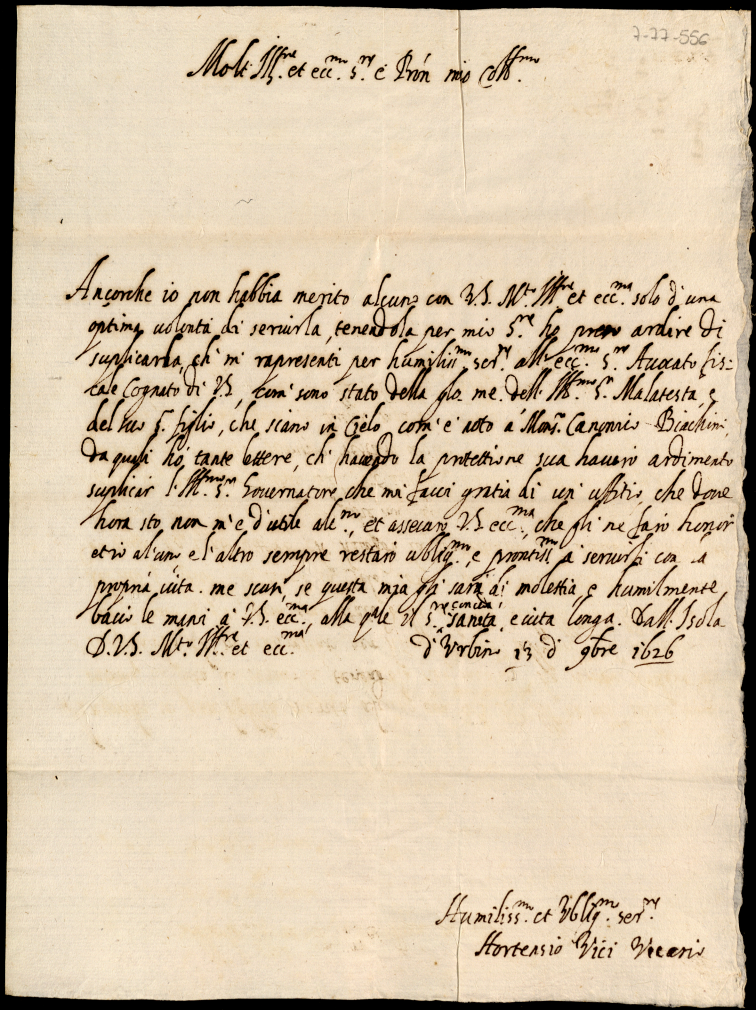 7-77-556
Molt' Ill.re et ecc.mo s.re e Pròn mio Coll.mo
Ancorche io non habbia merito alcuno con V.S. M.to Ill.re et ecc.ma solo d'una
optima uolontà di seruirla, tenendola per mio S.re ho preso ardire di
suplicarla, ch' mi rapresenti per humiliss.mo ser.re all' ecc.mo S.re Auocato fis-
cale Cognato di V.S., com' sono stato della glo. me. dell' Ill.mo S.r Malatesta, e
del suo S. figlio, che siano in Cielo, com' è noto à Mons.r Canonico Biachini,
da quali hò tante lettere, ch' hauendo la protettione sua hauerò ardimento
suplicar l' Ill.mo S.r Gouernatore, che mi facci gratia di un' uffitio, che doue
hora sto, non m'è d'utile alc.no, et assecuro V.S. ecc.ma, che gli ne farò honor
et io al'uno e l'altro sempre restarò ubblig.mo, e prontiss.mo à seruirli con la
propria uita. me scusi, se questa mia gli sarà di molettia, e humilmente
bacio le mani à V.S. ecc.ma, alla q'le il S.re conceda sanità, e uita longa. Dall' Isola
D.V.S. M.to Ill.re et ecc.ma d'Urbino 13 d' 9bre 1626
Humiliss.mo et Ubblig.mo ser.re
Hortensio Vici Vicario